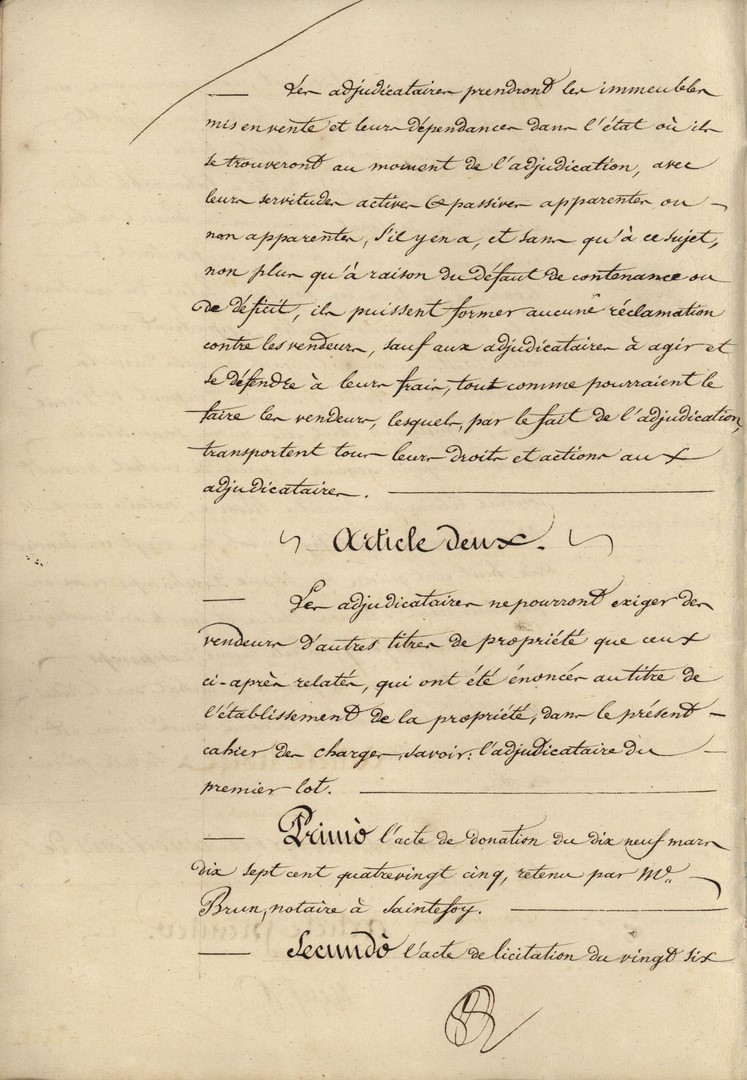 Les adjudicataires prendront les immeubles
mis en vente et leurs dépendances dans l'état où ils
se trouveront au moment de l'adjudication, avec
leurs servitudes actives & passives apparentes ou
non apparentes, s'il y en a, et sans qu'à ce sujet,
non plus qu'à raison du défaut de contenance ou
de déficit, ils puissent former aucune réclamation
contre les vendeurs, sauf aux adjudicataires à agir et
se défendre à leurs frais, tout comme pourraient le
faire les vendeurs, lesquels, par le fait de l'adjudication,
transportent tous leurs droits et actions aux
adjudicataires.
Article deux.
Les adjudicataires ne pourront exiger des
vendeurs d'autres titres de propriété que ceux
ci-après relatés, qui ont été énoncés au titre de
l'établissement de la propriété, dans le présent
cahier des charges, savoir: l'adjudicataire du
premier lot.
Primò l'acte de donation du dix neuf mars
dix sept cent quatrevingt cinq, retenu par Me
Brun, notaire à Saintefoy.
Secundò l'acte de licitation du vingt six